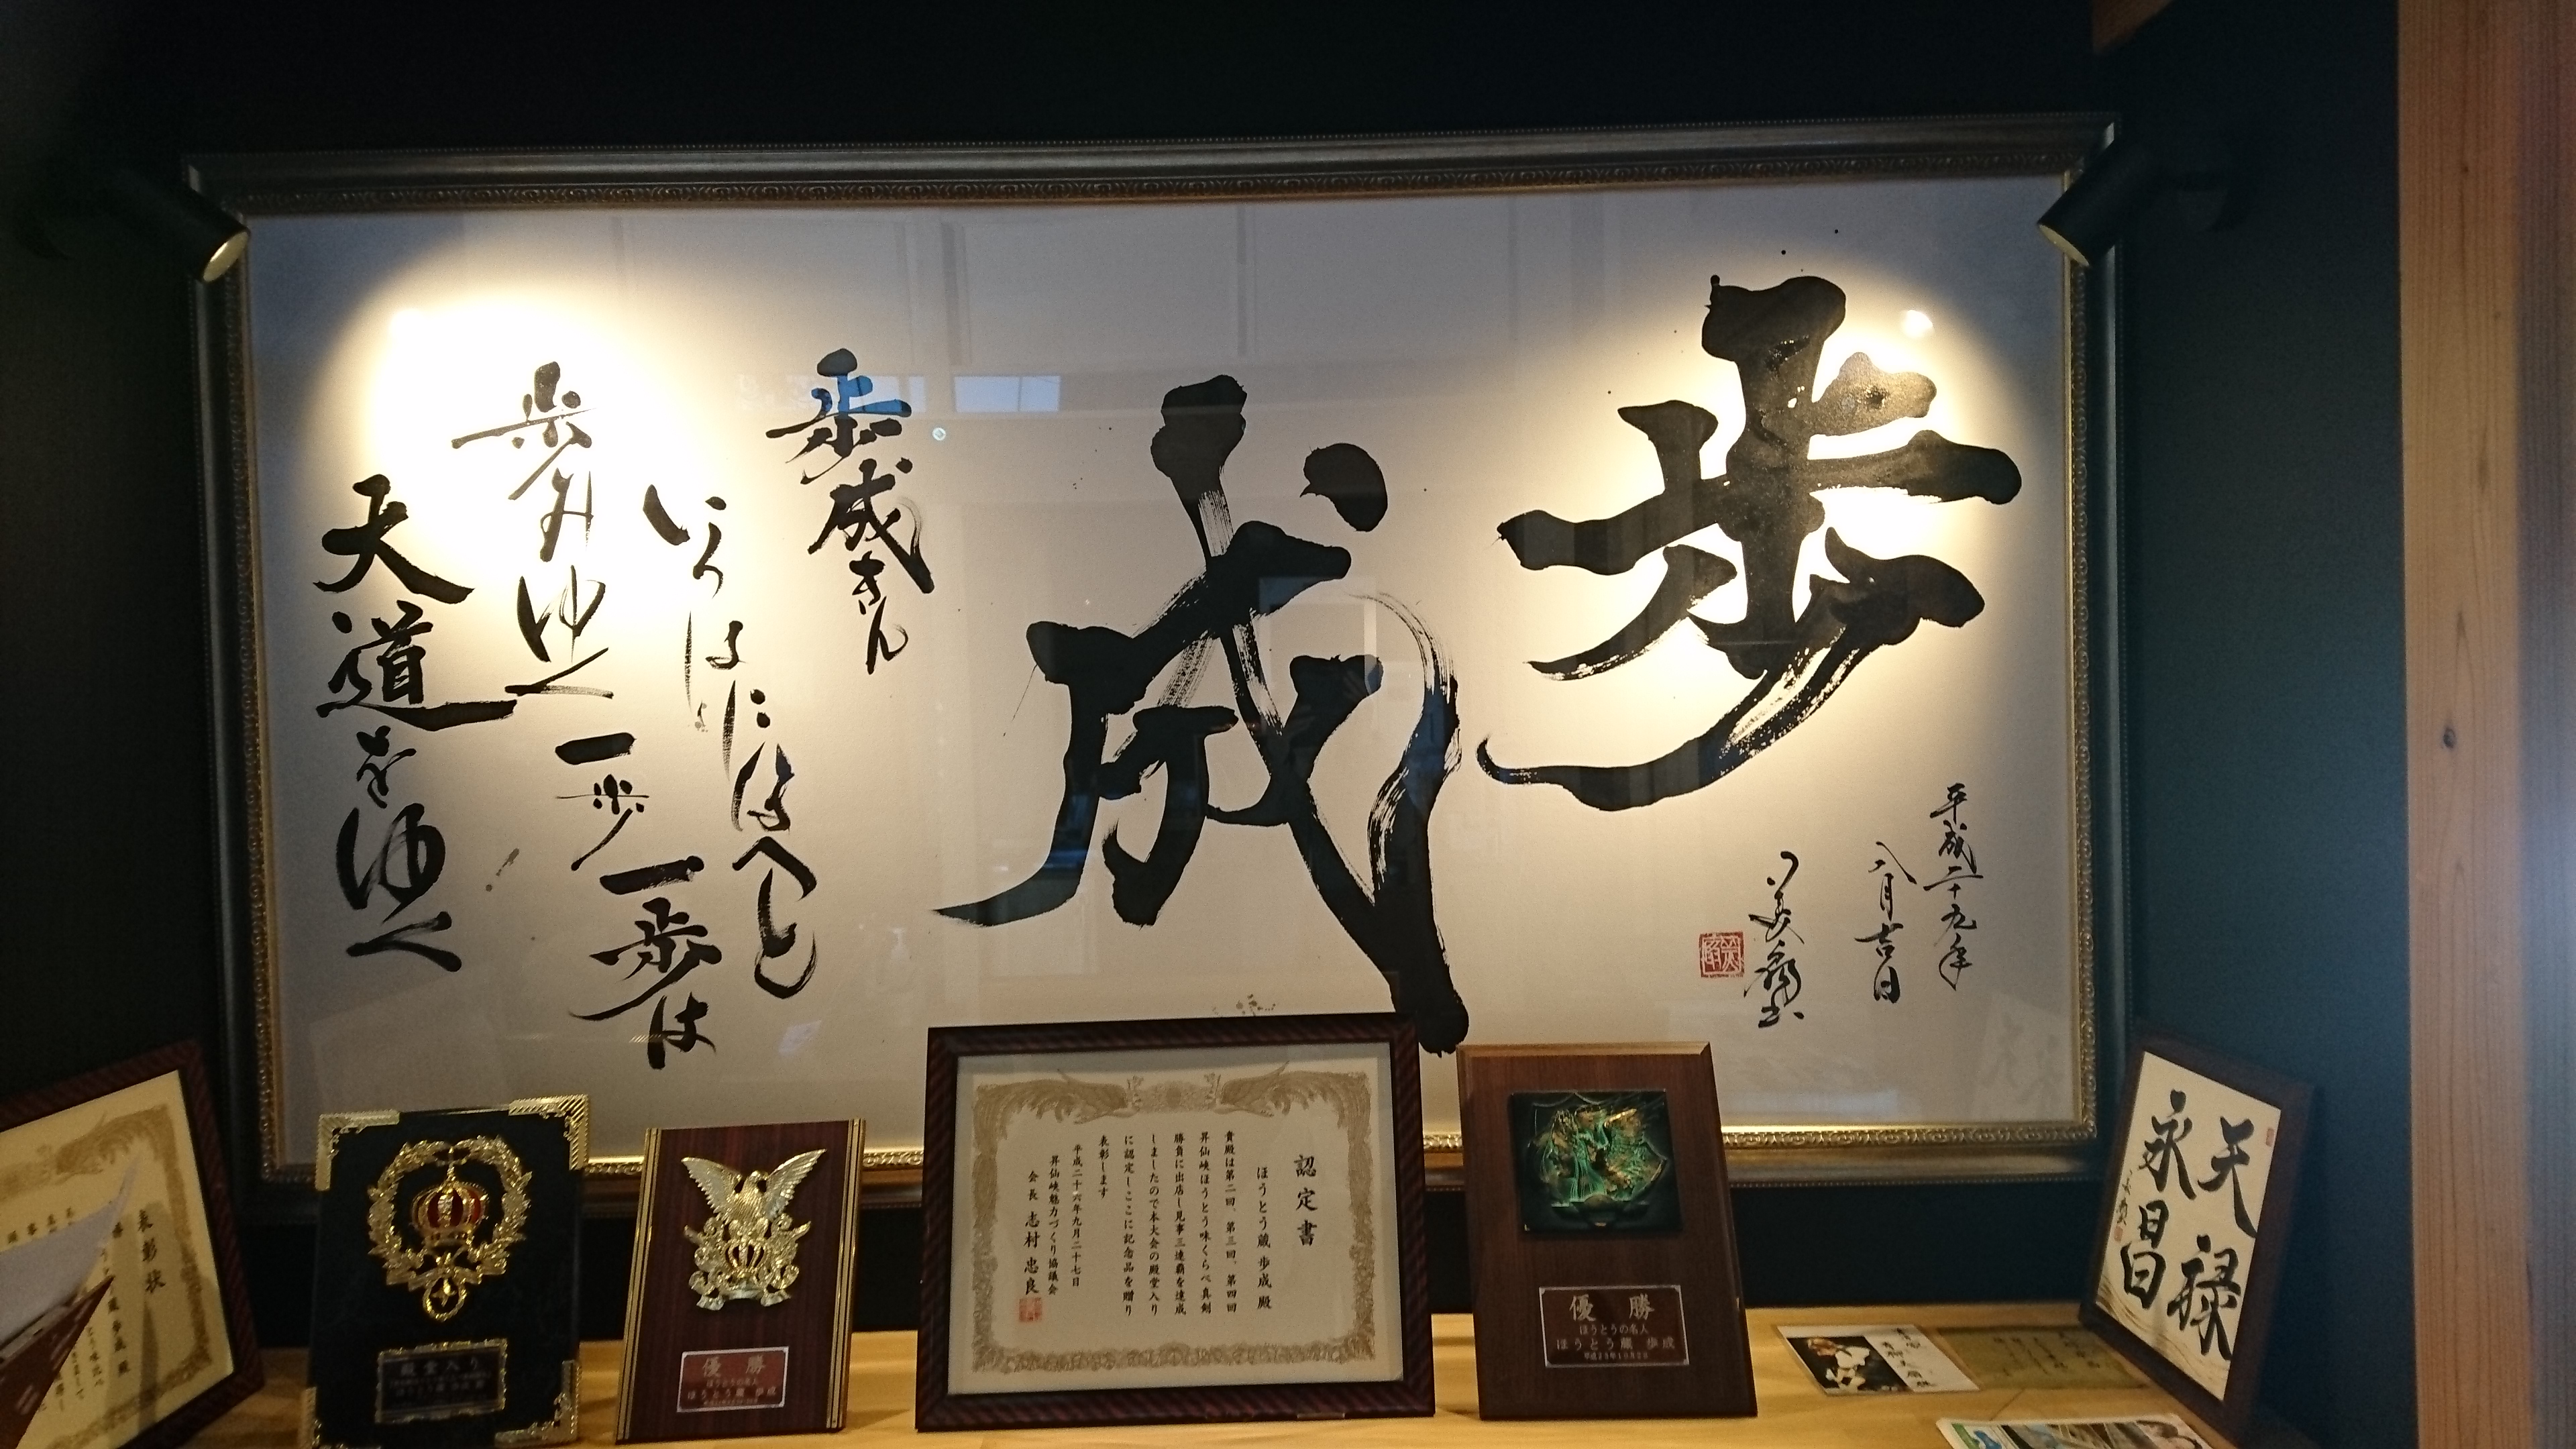 歩成
平成二十九年
八月吉日
歩成さん
いろはにほへと
歩みゆく一歩一歩は
天道をゆく
表彰状
殿堂入り
優勝
ほうとうの名人
ほうとう蔵 歩成
認定書
ほうとう蔵 歩成 殿
貴殿は第二回、第三回、第四回
昇仙峡ほうとう味くらべ真剣
勝負に出店し見事三連覇を達成
しましたので本大会の殿堂入り
に認定しここに記念品を贈り
表彰します
平成二十六年九月二十七日
昇仙峡魅力づくり協議会
会長 志村 忠良
優勝
ほうとうの名人
ほうとう蔵 歩成
天禄
永昌